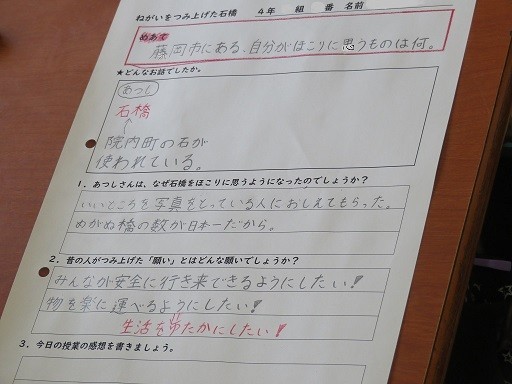 ねがいをつみ上げた石橋　４年　組　番 名前
めあて
藤岡市にある、自分がほこりに思うものは何。
★どんなお話でしたか。
あつし
石橋
院内町の石が
使われている。
１．あつしさんは、なぜ石橋をほこりに思うようになったのでしょうか？
いいところを写真をとっている人におしえてもらった。
めがね橋の数が日本一だから。
２．昔の人がつみ上げた「願い」とはどんな願いでしょうか？
みんなが安全に行き来できるようにしたい！
物を楽に運べるようにしたい！
生活をゆたかにしたい！
３．今日の授業の感想を書きましょう。